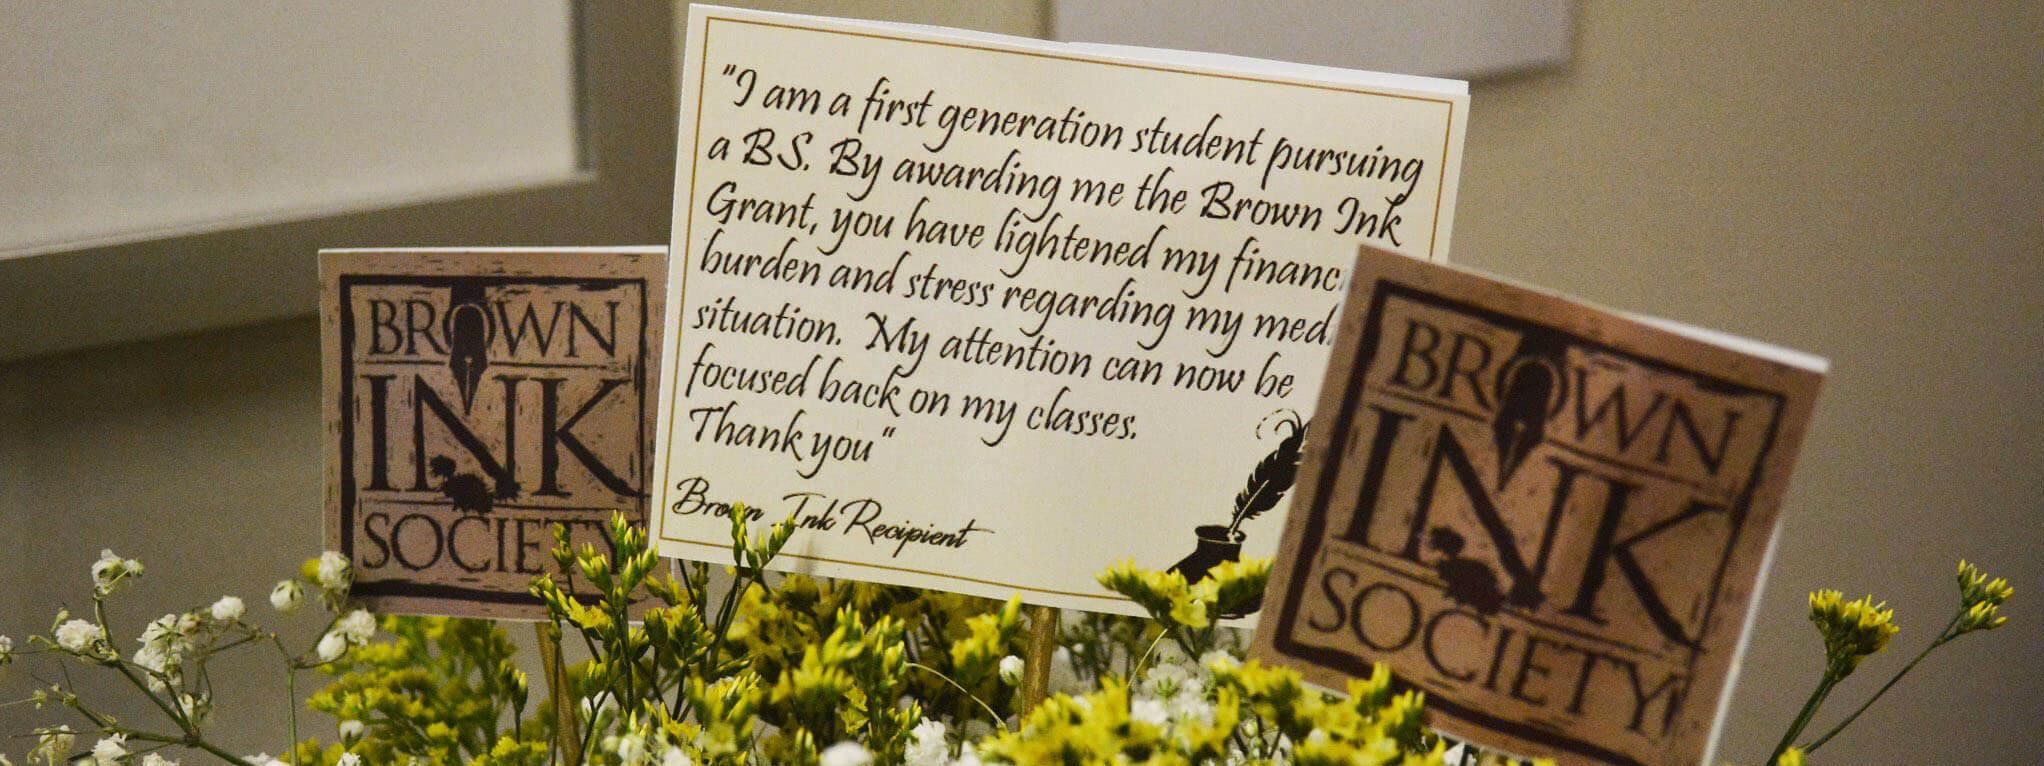 "I am a first generation student pursuing
a BS. By awarding me the Brown Ink
Grant, you have lightened my
burden and stress regarding my
situation. My attention can now be
focused back on my classes.
Thank you"
Brown Ink Recipient
BROWN
INK
SOCIETY
BROWN
INK
SOCIETY